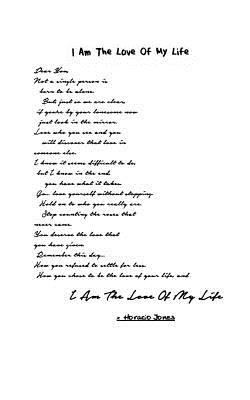 I Am The Love Of My Life
Dear You,
Not a single person is
born to be alone.
But just so we are clear,
if you're by your lonesome now
just look in the mirror.
Love who you see and you
will discover that love in
someone else.
I know it seems difficult to do,
but I know in the end
you have what it takes.
Love yourself without stopping.
Hold on to who you really are.
Stop counting the roses that
never came.
You deserve the love that
you have given.
Remember this day...
How you refused to settle for less.
How you chose to be the love of your life, and
I Am The Love Of My Life
- Horacio Jones